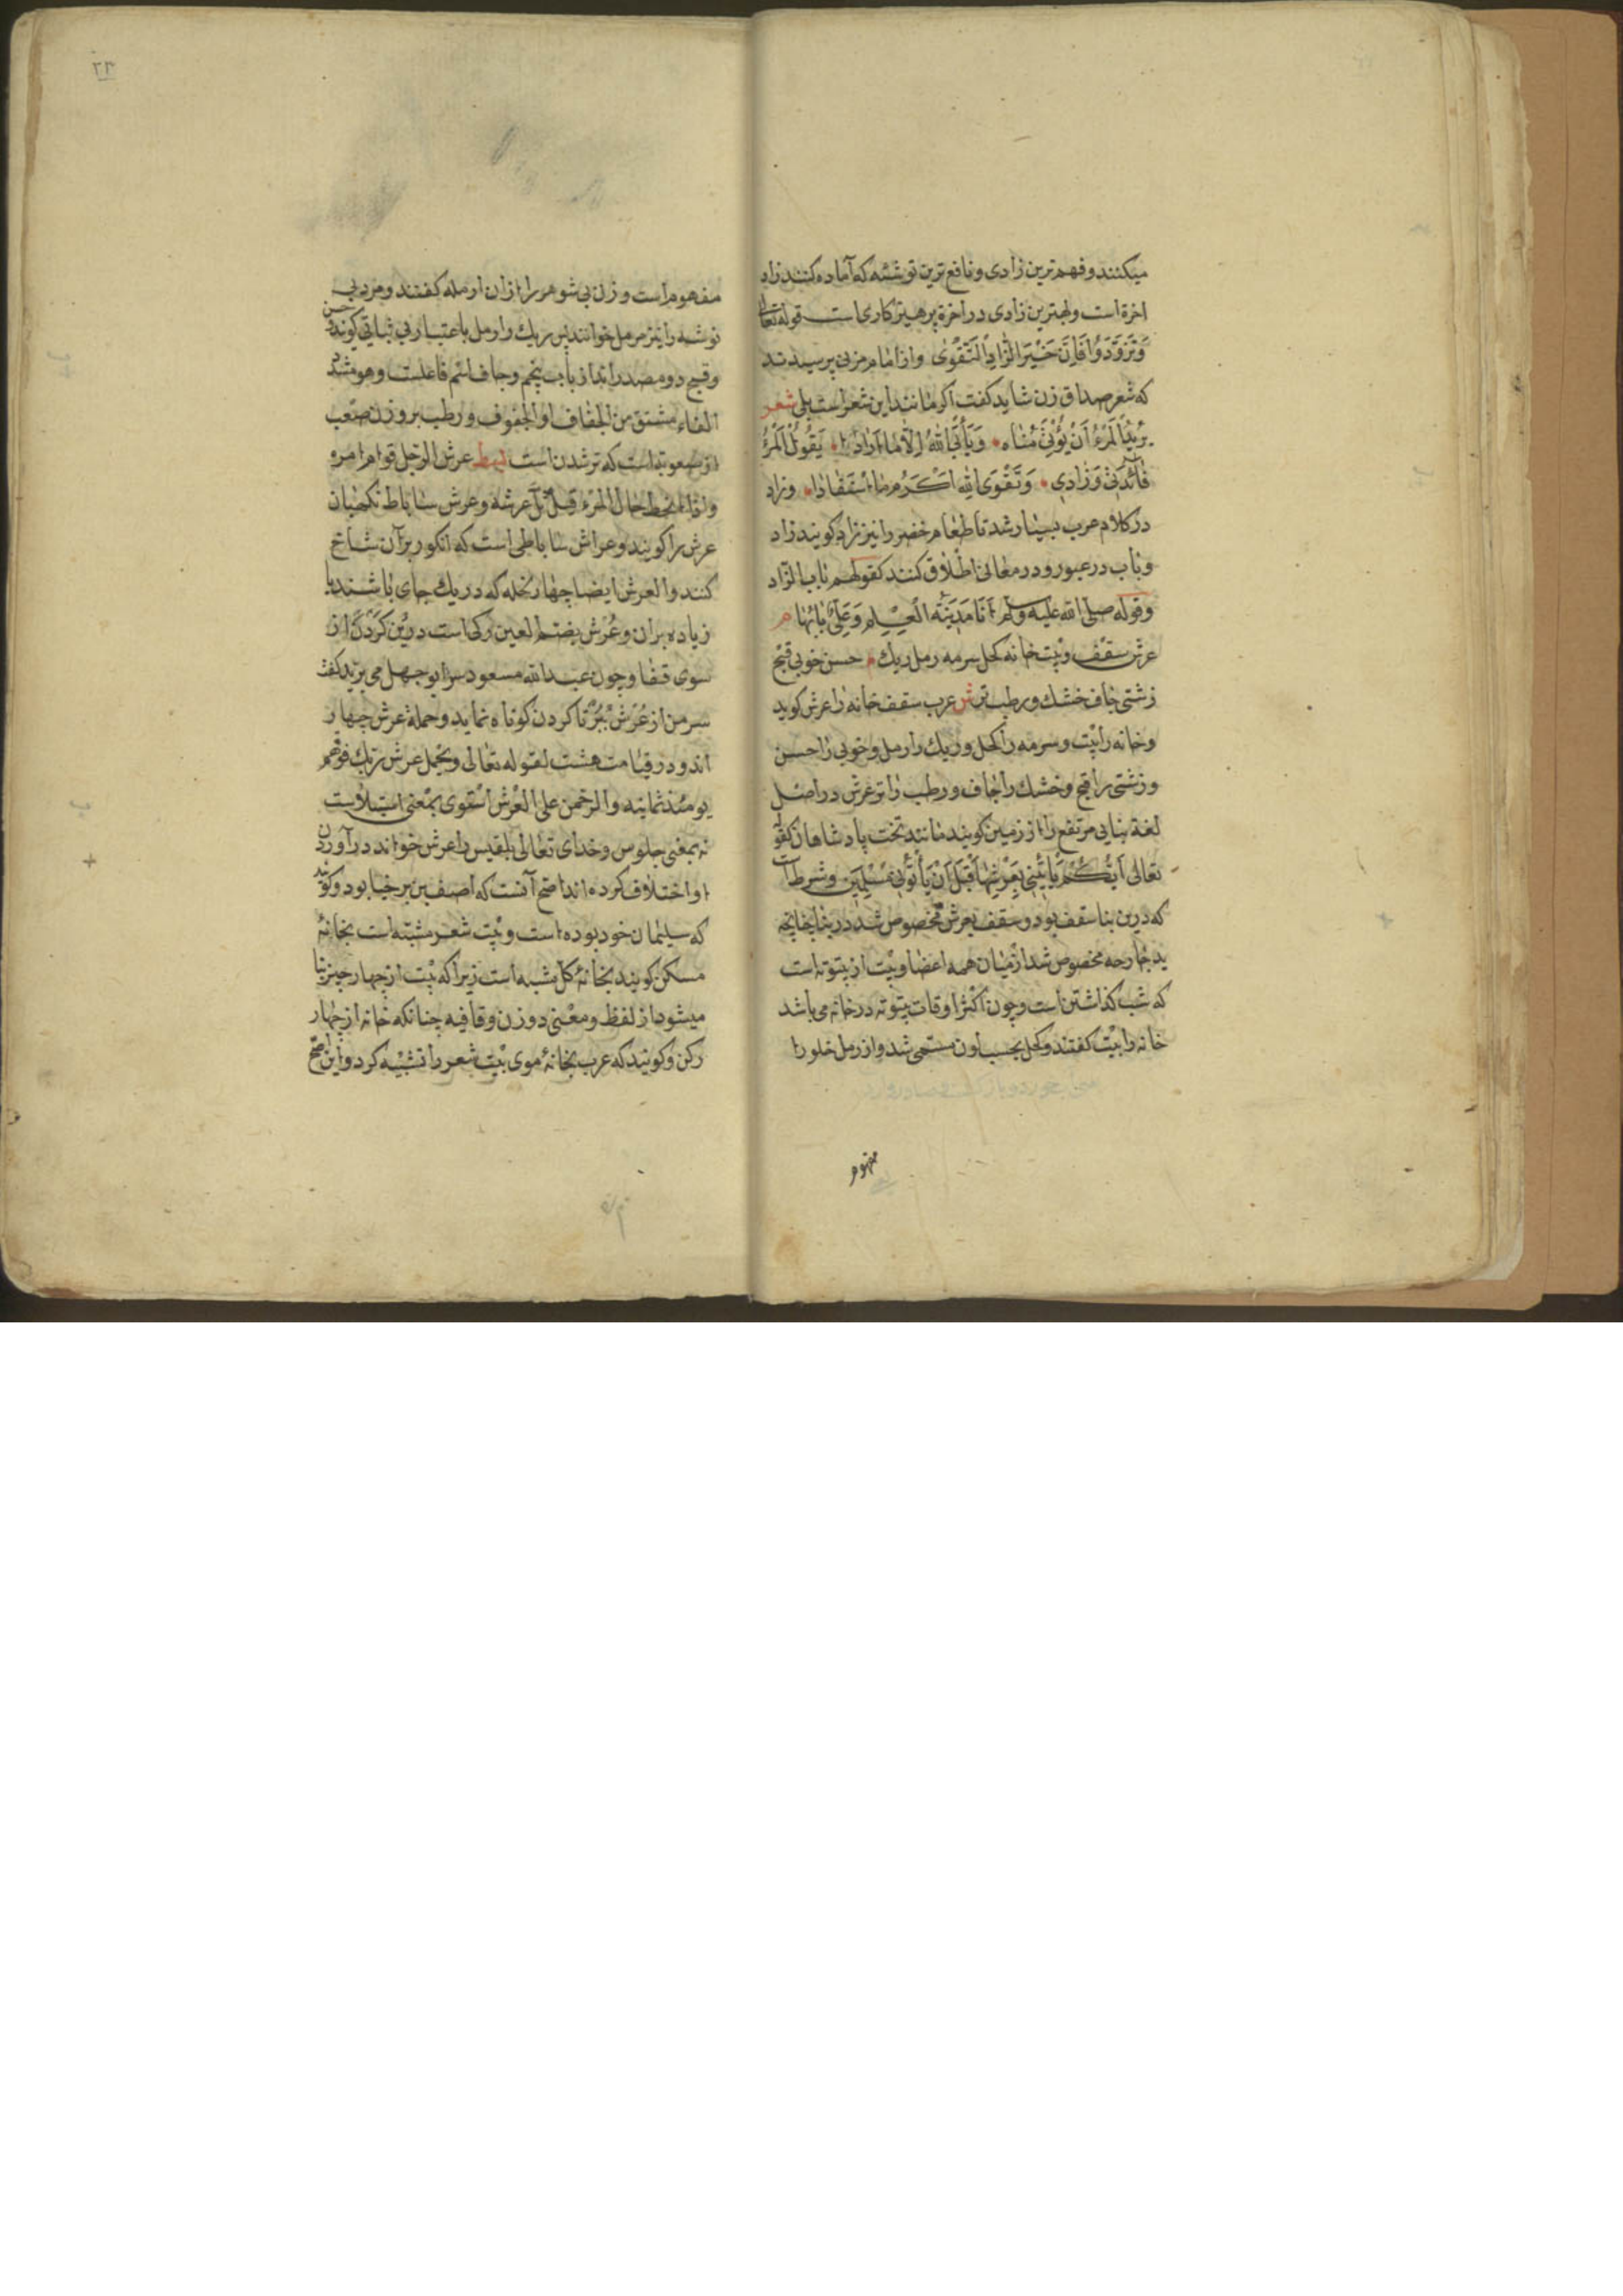 میکنند و فهم ترین زادی و نافع ترین توشئه که آماده کنند زاد
اخرة است و بهترین زادی در اخرة پرهیزکاری است قوله تعالی
وَتَزَوَّدُوا فَاِنَّ خَيْرَ الزَّادِ التَّقْوٰى و از امام مزنی پرسیدند
که شعر صداق زن شاید کفت اکر مانند این شعر است بلی شعر
يُرِيْدُ الْمَرْءُ اَنْ يُؤْتٰى مُنَاه وَيَأْبَى اللّٰهُ اِلَّا مَا اَرَادَا يَقُولُ الْمَرْءُ
فَائِدَتِيْ وَزَادِي وَتَقْوَى اللّٰهِ اَكْرَمُ مَا اسْتَفَادَا وزاد
در کلام عرب بسیار شد تا طعام حضر را نیز زاد کویند زاد
و باب در عبور و در معانی اطلاق کنند کقولهم باب الزاد
وقوله صلی الله علیه وسلم اَنَا مَدِيْنَةُ الْعِلْمِ وَعَلِيٌّ بَابُهَا م
عرش سقف و بیت خانه کحل سرمه رمل ریك حسن خوبی قبح
زشتی جاف خشك و رطب تر ش عرب سقف خانه را عرش کوید
و خانه را بیت و سرمه را کحل و ریك را رمل و خوبی را حسن
و زشتی را قبح و خشك را جاف و رطب را تر عرش در اصل
لغة بنایی مرتفع را از زمین کویند مانند تخت پادشاهان کقوله
تعالی اَيُّكُمْ يَأْتِيْنِي بِعَرْشِهَا قَبْلَ اَنْ يَأْتُوْنِي مُسْلِمِيْنَ و شرط آنست
که درین بنا سقف بود و سقف بعرش مخصوص شد در بنا چنانچه
ید جارحه مخصوص شد از میان همه اعضا و بیت از بیتوته است
که شب کذاشتن است و چون اکثر اوقات بیتوته در خانه می باشد
خانه را بیت کفتند و کحل بحسب لون مسمی شد و از رمل خلو را
مفهوم
۲۳
مفهوم است و زن بی شوهر را ازان ارمله کفتند و مرد بی
توشه را نیز مرمل خوانند پس ریك را رمل باعتبار بی ثباتی کویند حسن
و قبح دو مصدراند از باب پنجم و جاف اسم فاعلست و هو مشدد
الفاء مشتق من الجفاف او الجفوف و رطب بر وزن صعب
از صعوبة است که تر شدن است عرش الرجل قوام امره
واذا انحط حال المرء قیل ثل عرشه و عرش ساباط نکهبان
عرش را کویند و عراش ساباطی است که انکور بر آن شاخ
کنند و العرش ایضا چهار نخله که در یك جای باشند یا
زیاده بران و عُرْش بضم العین رکی است در بُن کردن از
سوی قفا و چون عبد الله مسعود سر ابو جهل می برید کفت
سر من از عُرْش ببُر تا کردن کوتاه نماید و حملة عرش چهار
اند و در قیامت هشت لقوله تعالی ویحمل عرش ربك فوقهم
یومئذ ثمانیه والرحمن علی العرش استوی بمعنی استیلاست
نه بمعنی جلوس و خدای تعالی بلقیس را عرش خواند در آوردن
او اختلاف کرده اند اصح آنست که اصف بن برخیا بود و کویند
که سلیمان خود بوده است و بیت شعر مشبه است بخانهٔ
مسکن کویند بخانهٔ کل مشبه است زیرا که بیت از چهار چیز بنا
میشود از لفظ و معنی و وزن و قافیه چنانکه خانه از چهار
رکن و کویند که عرب بخانهٔ موی بیت شعر را تشبیه کرد و این اصح